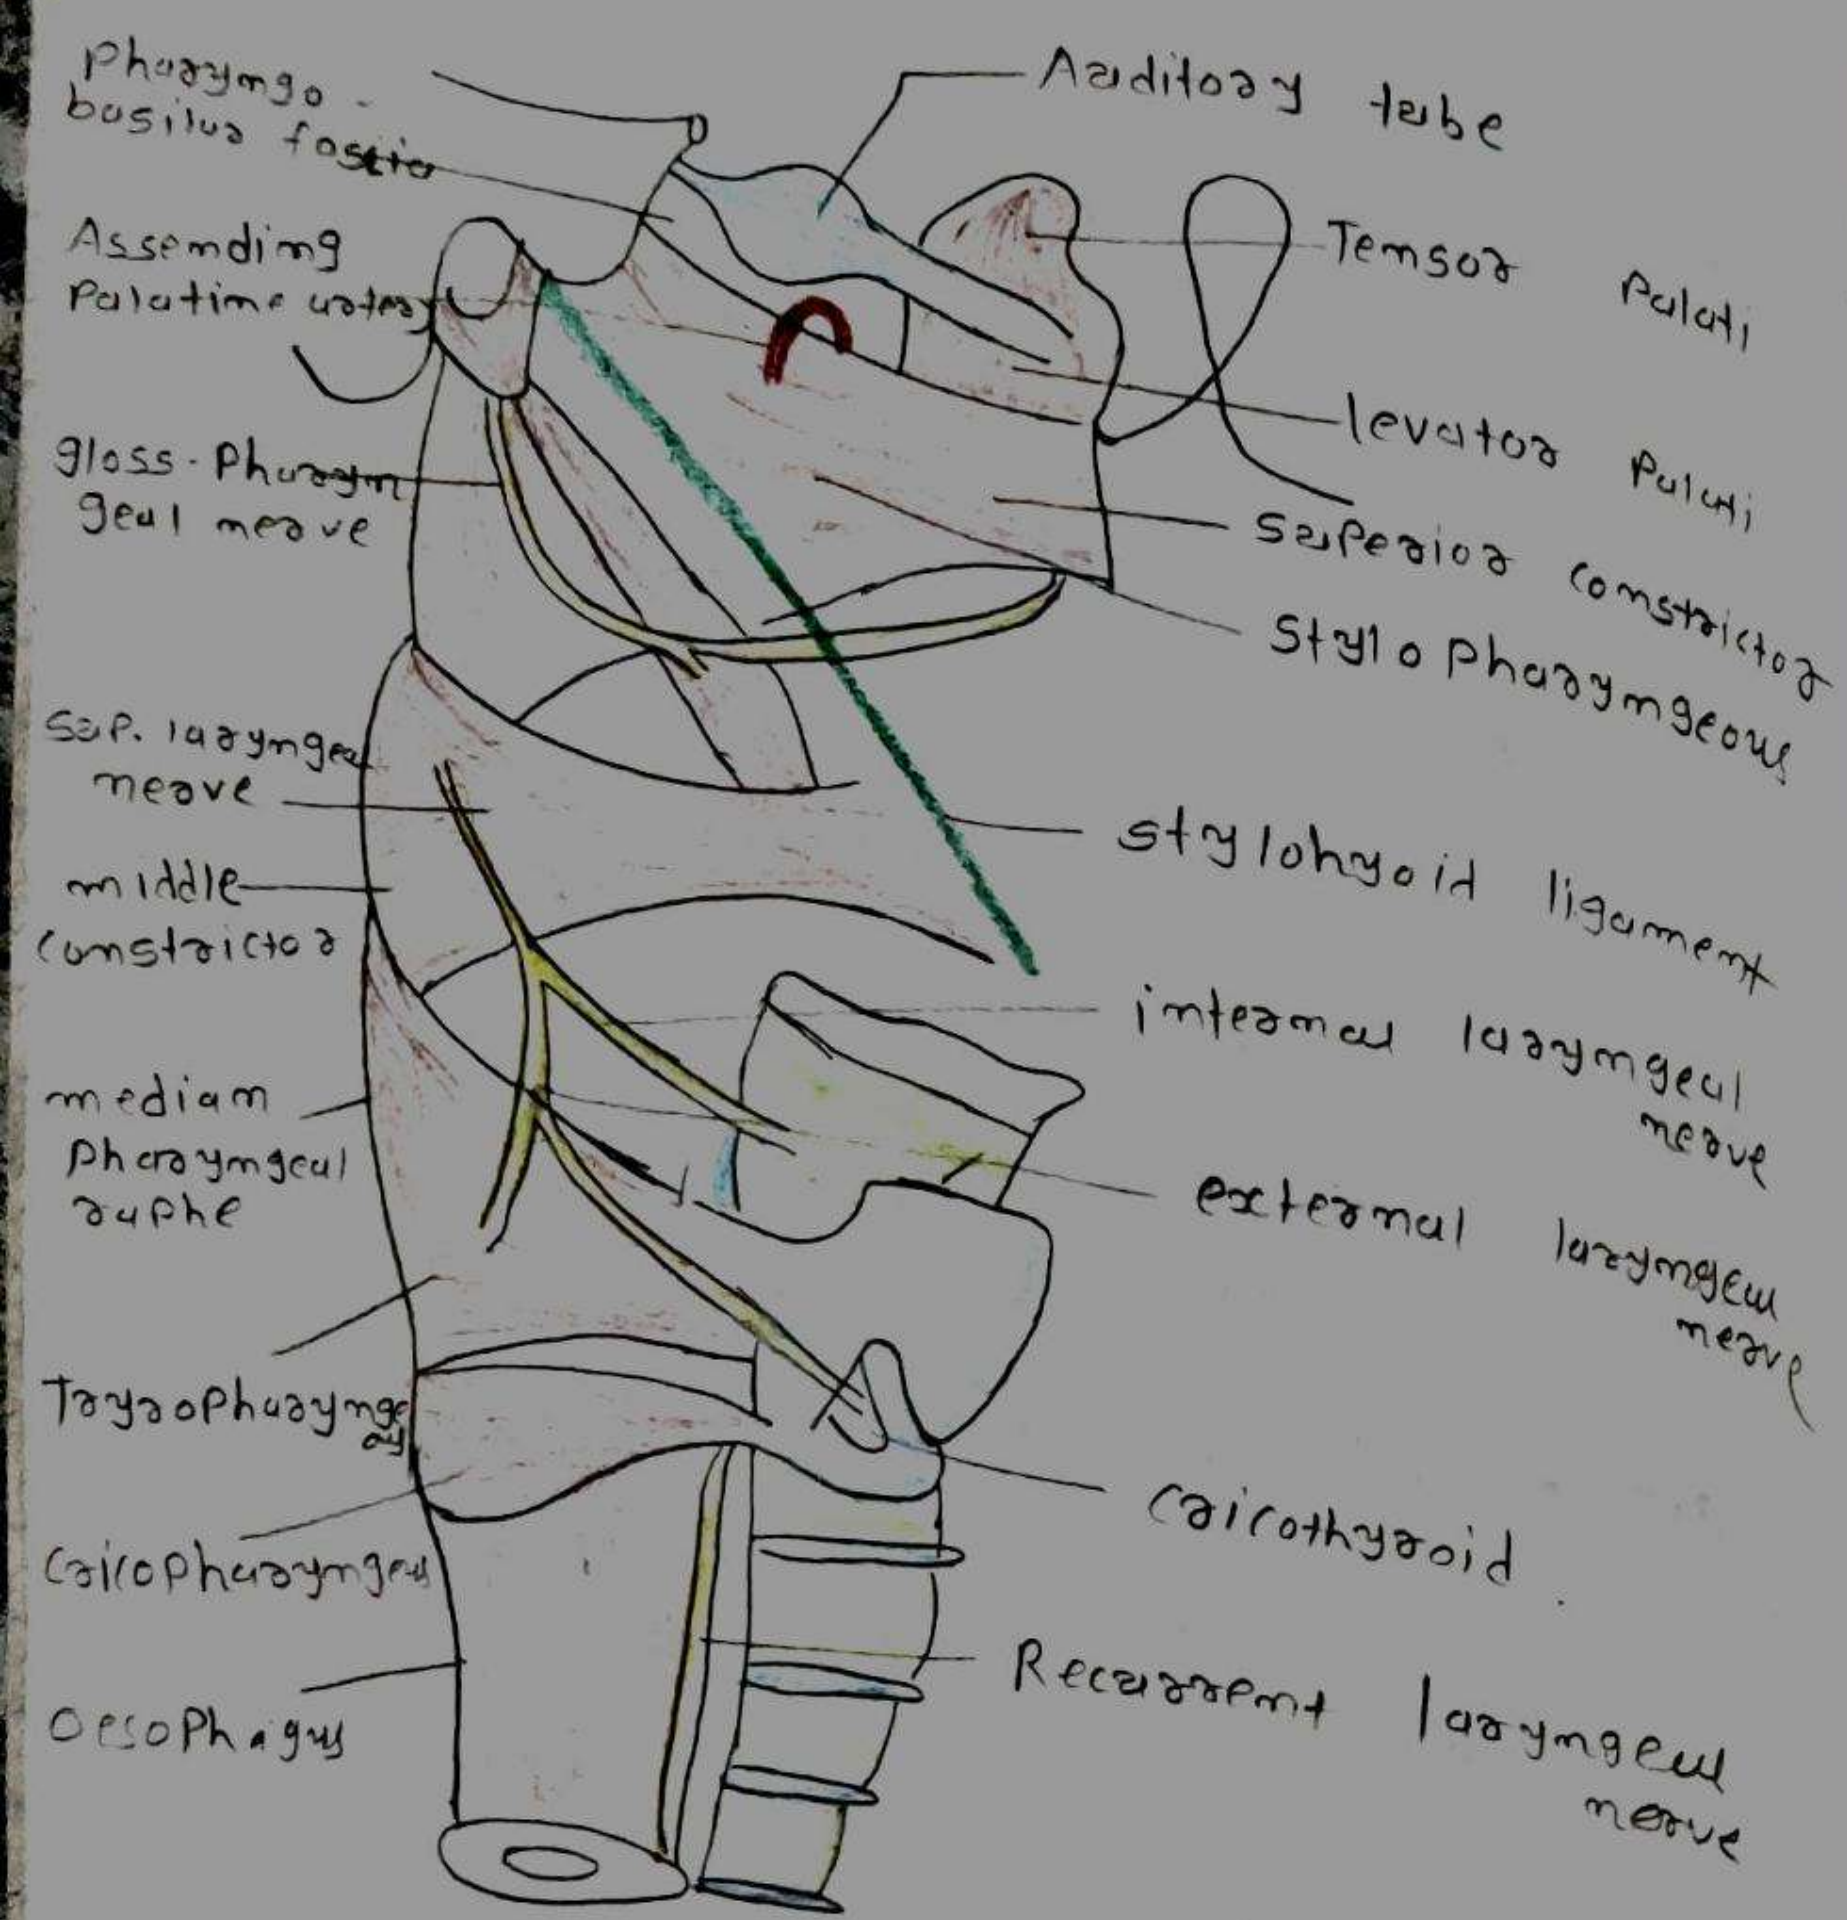 Pharyngo-
basilar fascia
Assending
Palatine artery
gloss-Pharyn
geal nerve
Sup. laryngeal
nerve
middle
constrictor
median
pharyngeal
raphe
Tryrophary​nge
us
Cricopharyngeus
Oesophagus
Auditory tube
Tensor Palati
levator Palati
Superior constrictor
Stylopharyngeous
stylohyoid ligament
internal laryngeal
nerve
external laryngeal
nerve
Cricothyroid.
Recurrent laryngeal
nerve